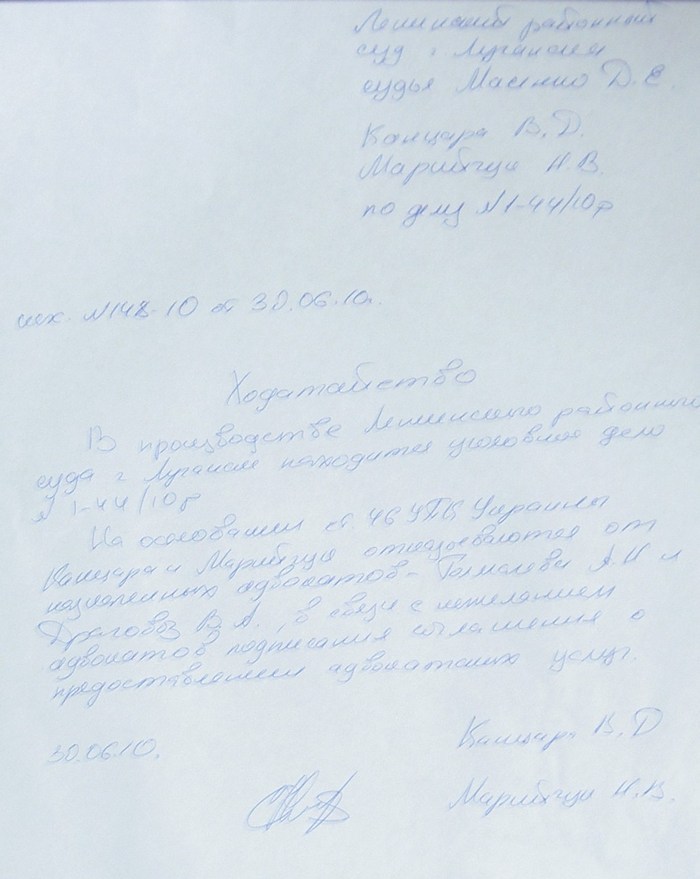 Ленинский районный
суд г. Луганска
судья Масенко Д. Е.
Канцара В. Д.
Н. В.
по делу №1-44/10 р
исх. №148-10 от 30.06.10г.
Ходатайство
В производстве Ленинского районного
суда г. Луганска находится уголовное дело
№ 1-44/10 р
На основании ст. 46 УПК Украины
Канцара и отказываются от
назначенных адвокатов - А. Н и
В. А., в связи с нежеланием
адвокатов подписания соглашения о
предоставлении адвокатских услуг.
30.06.10.
Канцара В. Д
Н. В.